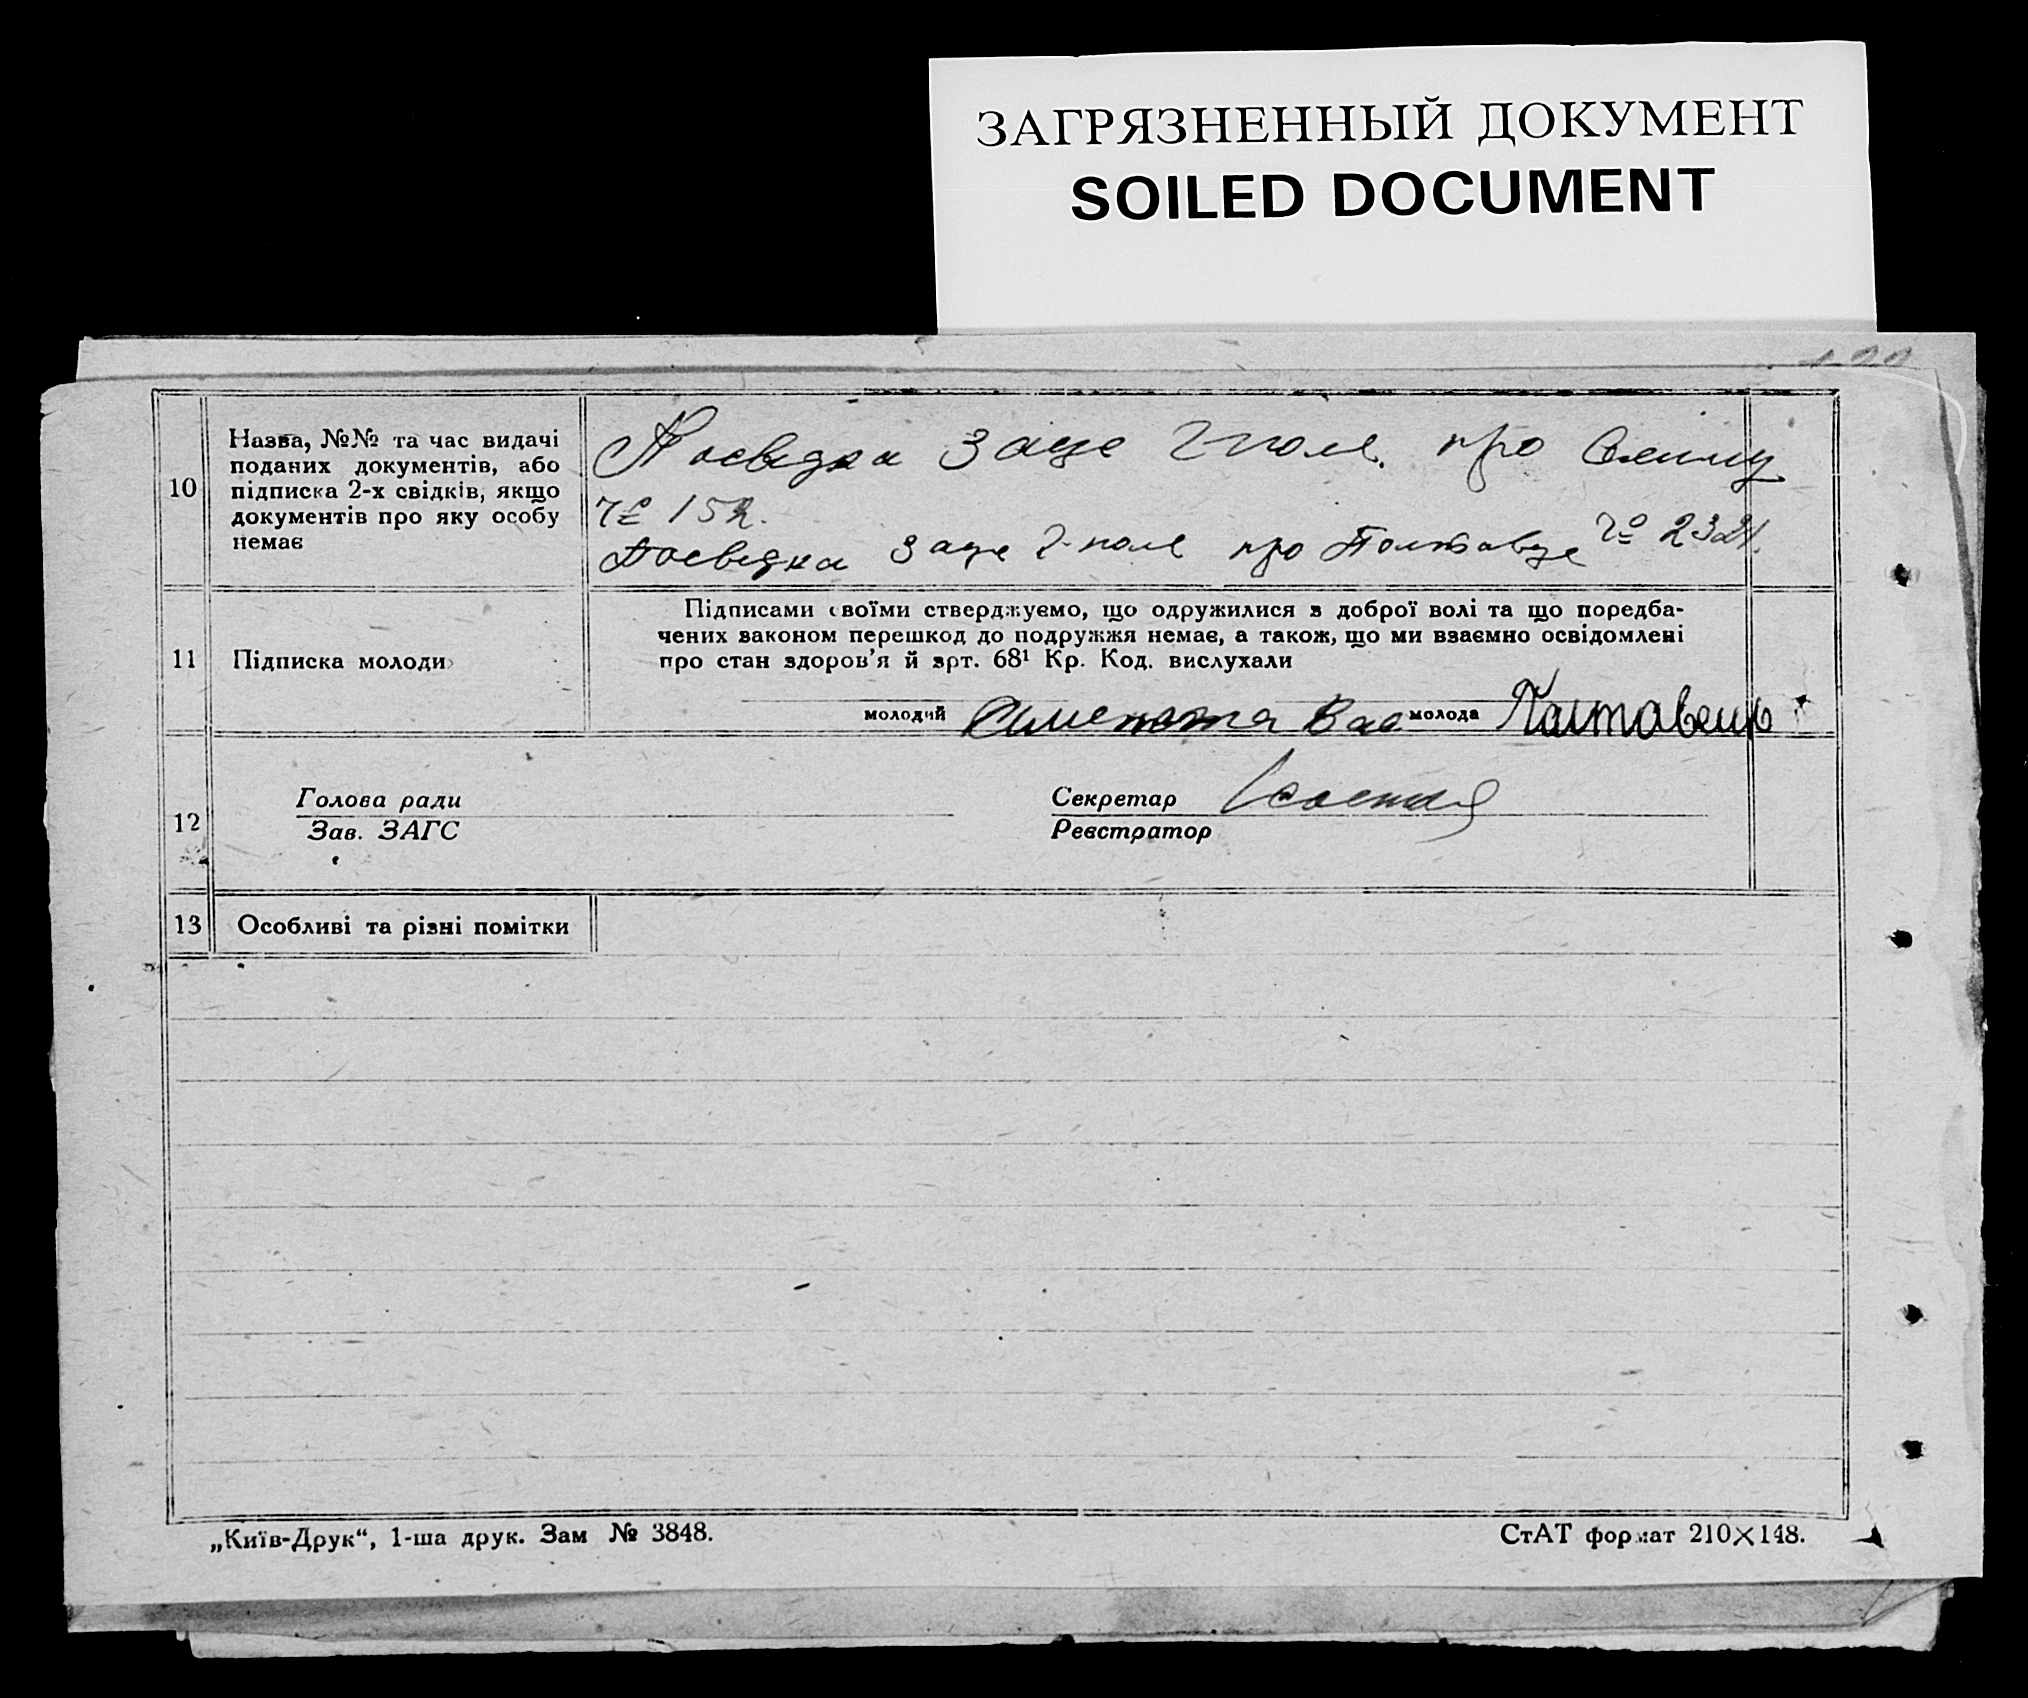 ЗАГРЯЗНЕННЫЙ ДОКУМЕНТ
SOILED DOCUMENT
10
Назва, №№ та час видачі
поданих документів, або
підписка 2-х свідків, якщо
документів про яку особу
немає
Посвідка про
№ 152.
Посвідка про Полтавце № 2321.
11
Підписка молоди
Підписами своїми стверджуємо, що одружилися з доброї волі та що передба-
чених законом перешкод до подружжя немає, а також, що ми взаємно освідомлені
про стан здоров'я й арт. 68¹ Кр. Код. вислухали
молодий молода Полтавець
12
Голова ради
Зав. ЗАГС
Секретар
Реєстратор
13
Особливі та різні помітки
„Київ-Друк“, 1-ша друк. Зам № 3848.
СтАТ формат 210×148.